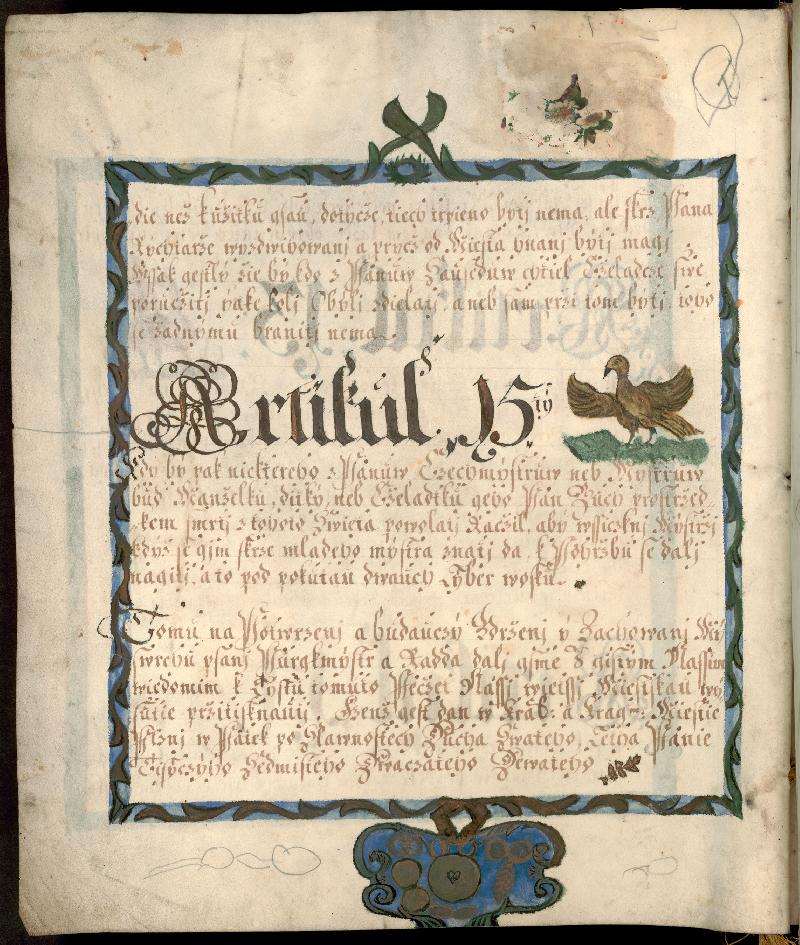 die než k užitku gsau, dotycže, tiech trpieno býti nema, ale skrz Pana
Rychtarže wyzdwihowanj a prycž od Miesta hnanj býti magj.
Wssak gestly že by kdo z Panuw Sauseduw chtiel Cželadcze swe
porucžiti yake koli Obyli zdielati, a neb sam przi tom býti, toho
se žadnymu braniti nema.
Artikul 15tý
Kdy by pak niektereho z Panuw Czechmystruw neb Mystruw
bud Manželku, ditky, neb Cželadku geho Pan Buch prostrzed
kem smrti z tohoto Swieta powolati Racžil, aby wssickni Mystrzi
když se gim skrze mladeho mystra znati da, k Pohrzbu se dali
nagiti, a to pod pokutau dwauch Lyber wosku.
Tomu na Potwrzenj a budauczý Zdrženj ý Zachowanj My
swrchu psanj Purgkmystr a Radda dali gsme S gistym Nassim
wiedomim k Lystu tomuto Peczet Nassi wietssi Miestskau wý
sutie przitisknauti. Genž gest dan w Kral: a Krag: Miestie
Plzni w Patek po Slawnostech Ducha Swateho, Letha Panie
Tisyczýho Sedmisteho Dwaczateho Dewateho